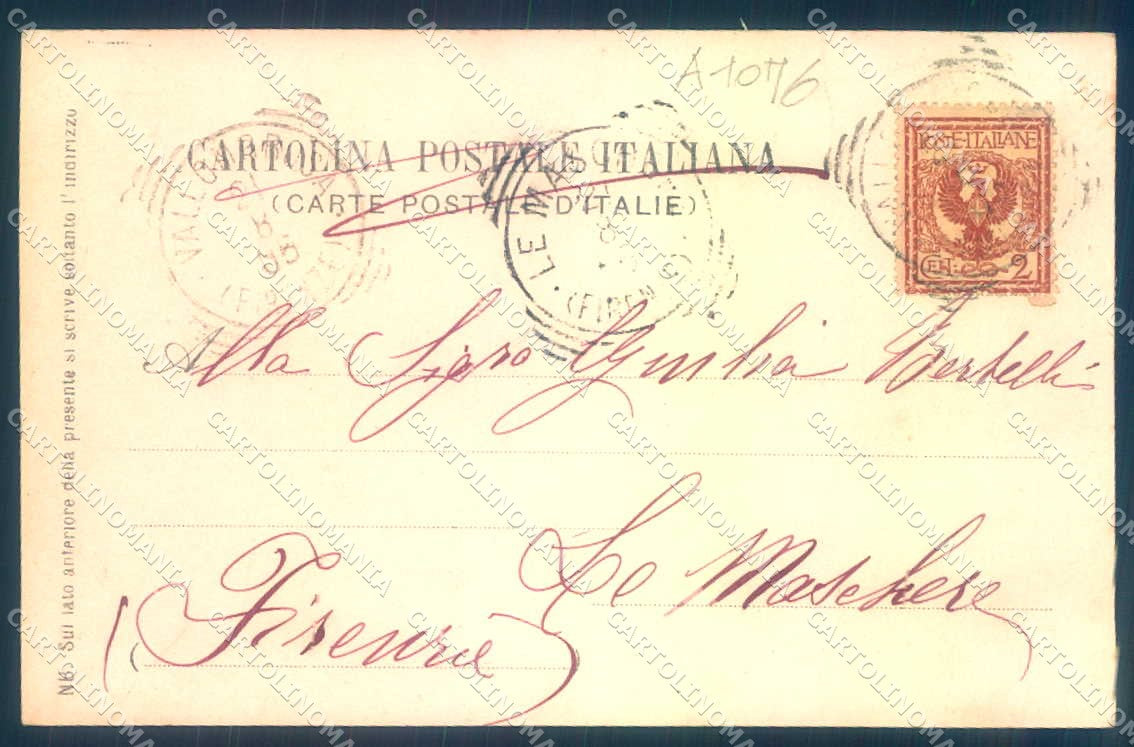 A1076
CARTOLINA POSTALE ITALIANA
(CARTE POSTALE D'ITALIE)
POSTE·ITALIANE
CENT. 2
LE MASCHERE
(FIRENZE)
Alla Sigra Giulia Bertelli
Le Maschere
(Firenze)
NB. Sul lato anteriore della presente si scrive soltanto l'indirizzo
CARTOLINOMANIA